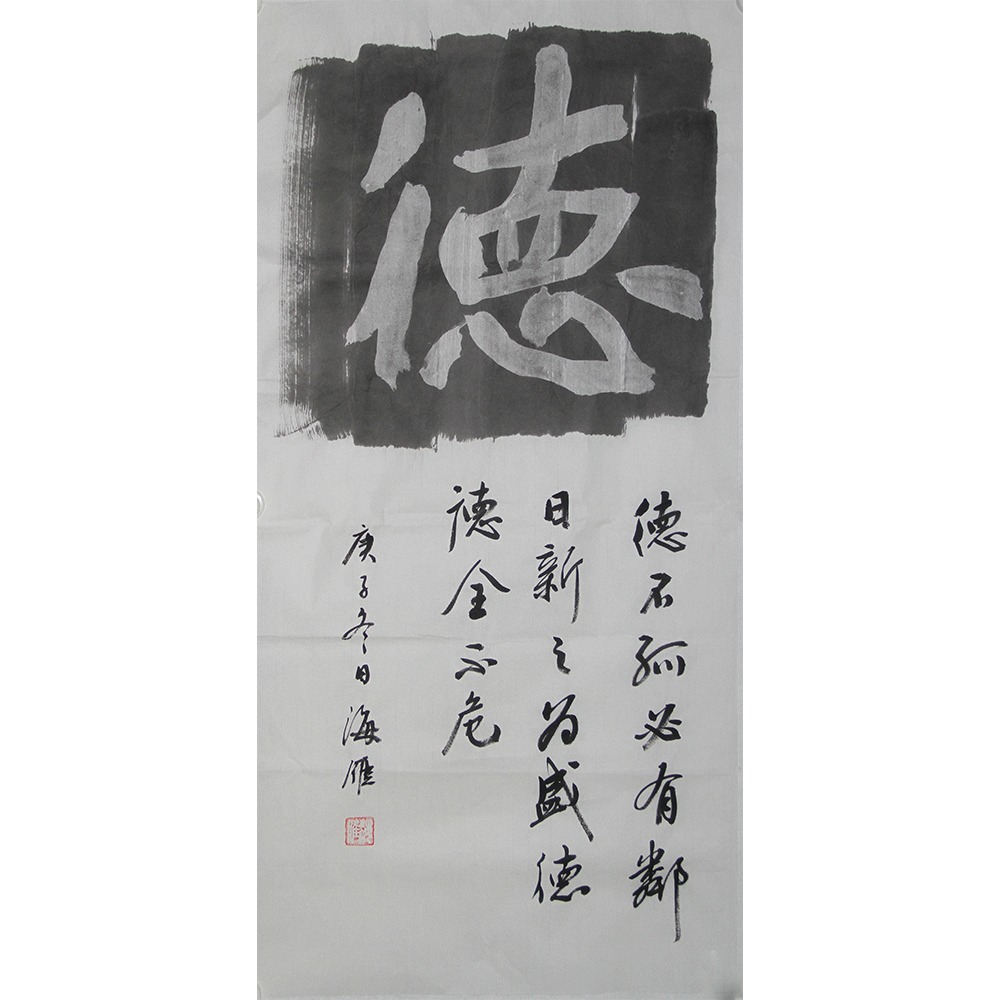 德
德不孤必有鄰
日新之为盛德
德全不危
庚子冬日海雁